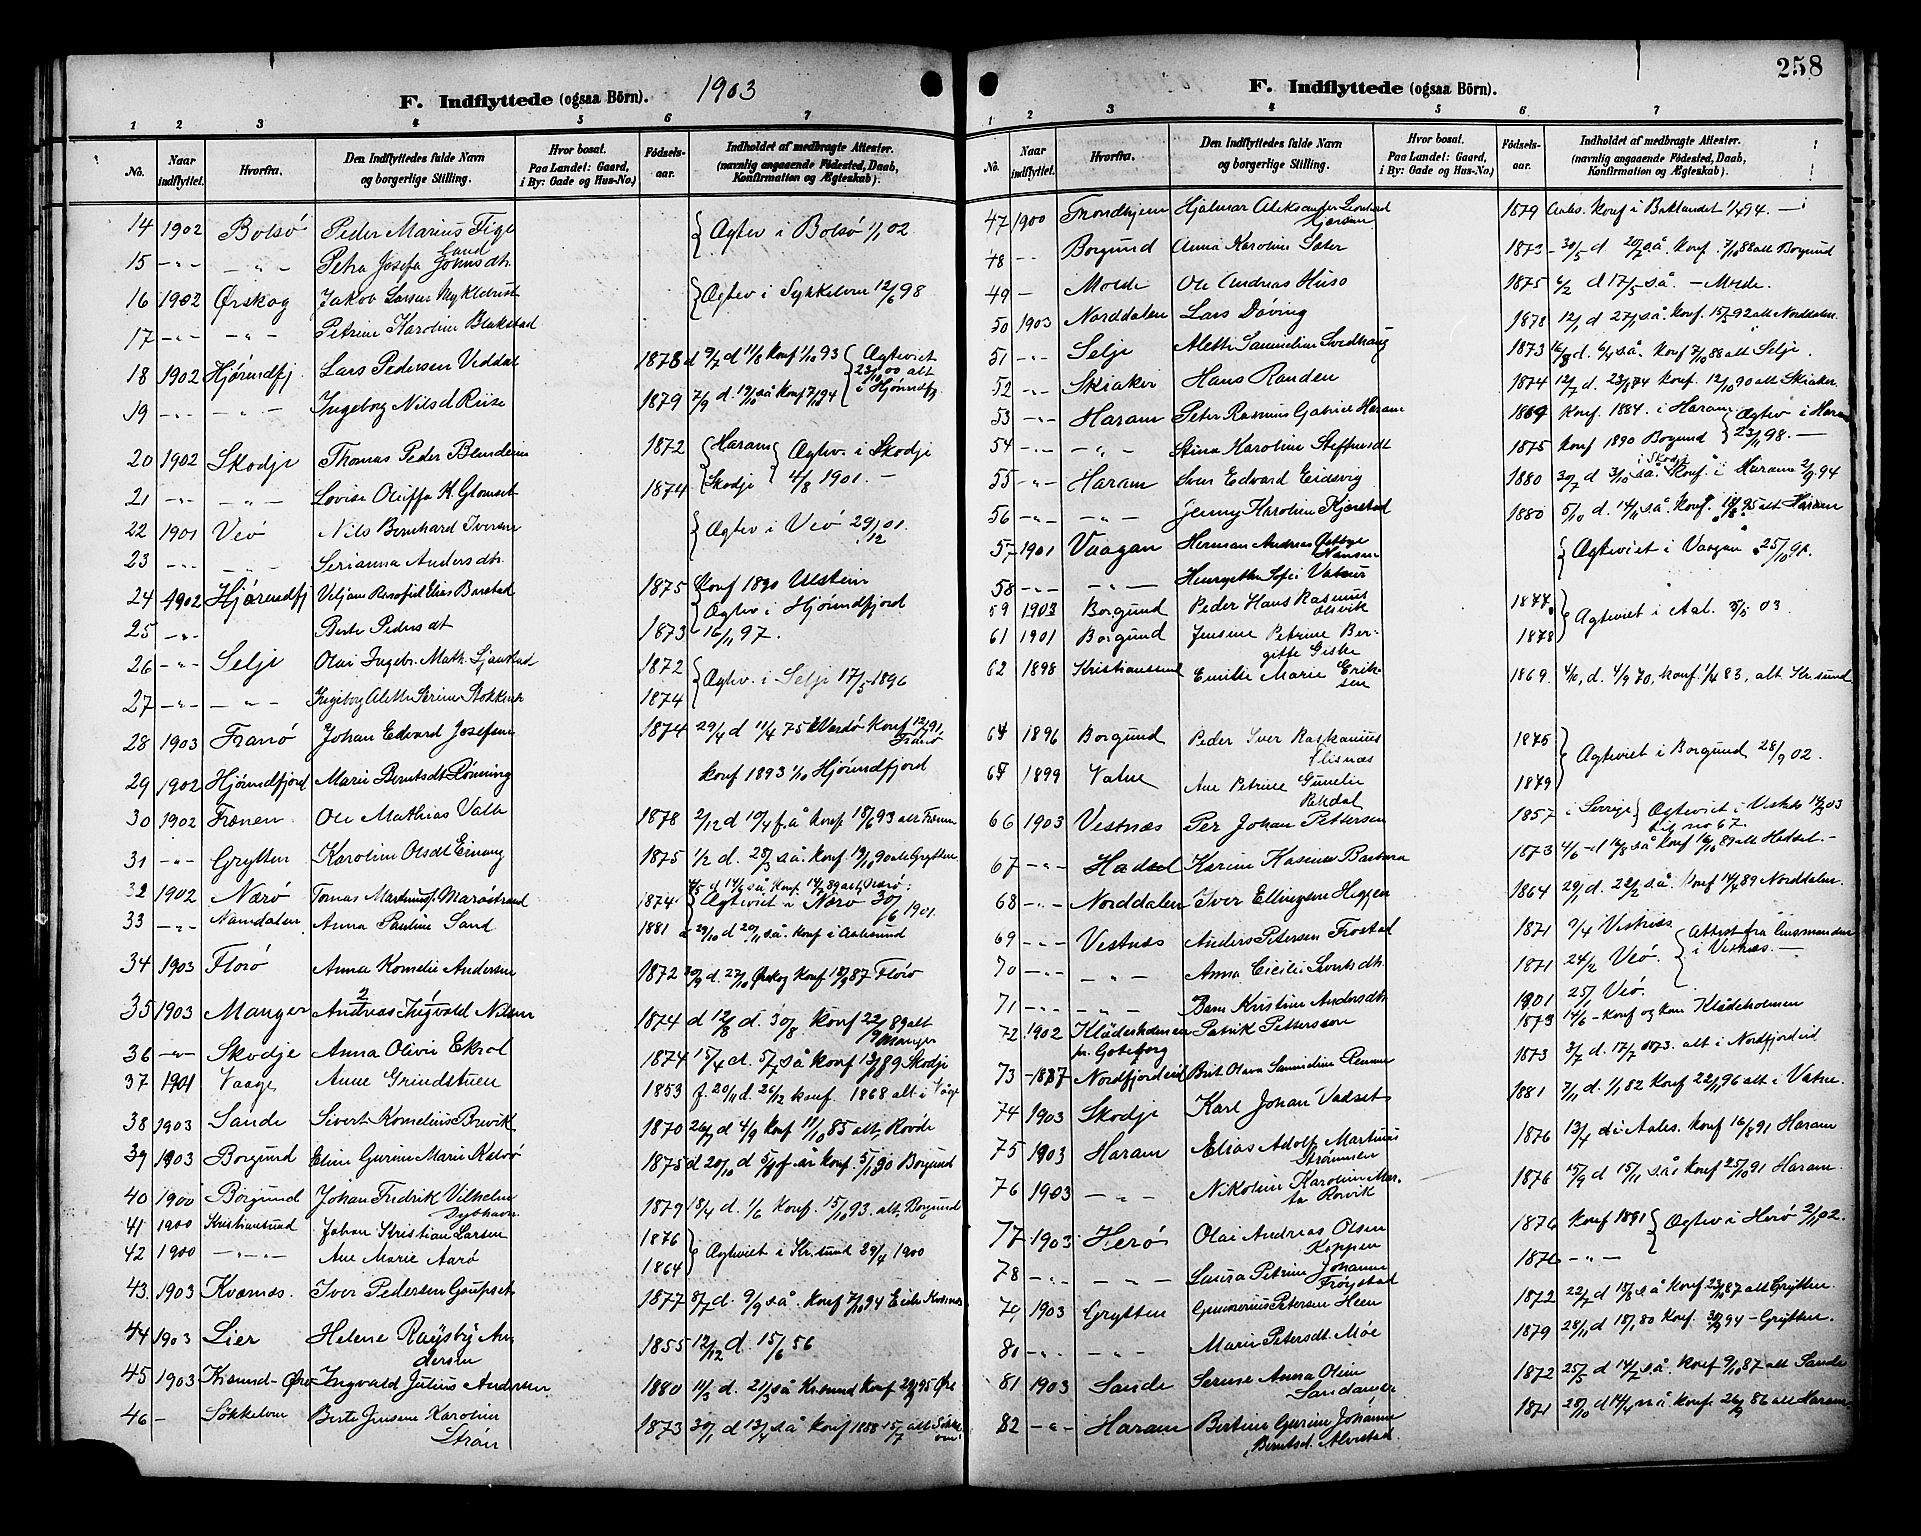 1903
F. Indflyttede (ogsaa Börn).
1 2 3 4 5 6 7
No.
Naar indflyttet.
Hvorfra.
Den Indflyttedes fulde Navn og borgerlige Stilling.
Hvor bosat. Paa Landet: Gaard, i By: Gade og Hus-No.)
Fødsels-aar.
Indholdet af medbragte Attester. (navnlig angaaende Fødested, Daab, Konfirmation og Ægteskab).
14 1902 Bolsø Peder Marius Tige Sand Ægtev i Bolsø 1/1 02
15 -"- -"- Petra Josefa Johnsdt.
16 1902 Ørskog Jakob Larsen Myklebust Ægtev i Sykkelven 12/6 98
17 -"- -"- Petrine Karoline Blakstad
18 1902 Hjørundfj Lars Pedersen Viddal 1878 d 9/7 d 11/8 Konf 1/10 93 Ægteviet 23/10 00 alt i Hjørundfj
19 -"- -"- Ingeborg Nilsd Riise 1879 7/9 d. 19/10 så Konf 7/10 94
20 1902 Skodje Thomas Peder Blindeim 1872 Haram Ægtev. i Skodje 4/8 1901.
21 -"- -"- Lovise Oliffa K. Glomset 1874 Skodje
22 1901 Veø Nils Bernhard Iversen Ægtev i Veø 29/12 01.
23 -"- -"- Serianna Andersdt.
24 1902 Hjørundfj Viljam Rasofiel Elias Barstad 1875 Konf 1890 Ulstein
25 -"- Berte Pedersdt 1873 Ægtev i Hjørundfjord 16/11 97.
26 -"- Selje Olai Ingebr. Math. Sjaastad 1872 Ægtev. i Selje 17/5 1896
27 -"- -"- Ingeborg Alette Serine Stokkevik 1874
28 1903 Franø Johan Edvard Josefsen 1874 29/4 d 11/4 75 i Vardø Konf 12/7 91 Franø
29 1902 Hjørundfjord Marie Berntsdt Rønning konf 1893 1/10 Hjørundfjord
30 1902 Frænen Ole Mathias Valle 1878 2/12 d 10/4 f. å Konf 18/6 93 alt Frænen
31 -"- Grytten Karoline Olsdt Einang 1875 1/2 d. 28/3 så. Konf. 19/1 90 alt Grytten
32 1902 Nærø Tomas Martinus Marøstrand 1874 Ægteviet i Nærø 30/6 1901.
33 -"- Namdalen Anna Pauline Sand 1881 29/10 d 20/11 så. Konf i Aalesund
34 1903 Florø Anna Kornelie Andersen 1872 30/9 d. 27/10 Ørskog Konf 18/9 87 Florø
35 1903 Manger Andreas Ingvald Nilsen 1874 d 12/8 d. 30/8 Konf 22/9 89 alt Manger
36 -"- Skodje Anna Olivie Ekrol 1874 15/4 d. 5/7 så Konf 13/10 89 Skodje
37 1901 Vaage Anne Grindstuen 1853 f. 20/11 d. 26/12 konf. 1868 alt i Våge
38 1903 Sande Sivert Kornelius Brevik 1870 26/7 d 4/9 Konf 11/10 85 alt Rovde
39 1903 Borgund Eline Gurine Marie Kalvø 1875 d 20/10 d 5/10 s. år Konf. 5/10 90 Borgund
40 1900 Borgund Johan Fredrik Vilhelm Dybhavn 1879 18/4 d. 1/6 Konf. 15/10 93. alt Borgund
41 1900 Kristiansund Johan Kristian Larsen 1876 Ægteviet i Kr.sund 29/4 1900
42 1900 -"- Ane Marie Aarø 1864
43. 1903 Kværnæs. Iver Pedersen Gaupset 1877 8/7 d. 9/9 så. Konf 7/10 94 Eide Kværnæs
44 1903 Lier Helene Røysby Andersen 1855 12/12 d. 15/6 56
45 1903 Krsund-Øre Ingvald Julius Andersen 1880 11/3 d. 21/3 så Krsund Konf 29/9 95 Øre
46 - Søkkelven Berte Jensine Karoline Strøm 1873 30/1 d 13/4 så Konf 1888 15/7 alt Søkkelven
258
F. Indflyttede (ogsaa Börn).
1 2 3 4 5 6 7
No.
Naar indflyttet.
Hvorfra.
Den Indflyttedes fulde Navn og borgerlige Stilling.
Hvor bosat. Paa Landet: Gaard, i By: Gade og Hus-No.)
Fødsels-aar.
Indholdet af medbragte Attester. (navnlig angaaende Fødested, Daab, Konfirmation og Ægteskab).
47 1900 Trondhjem Hjalmar Aleksander Leonard Iversen 1879 Aales. Konf i Baklandet 1/4 94. -
48 -"- Borgund Anna Karoline Sæter 1873 - 30/5 d 20/7 så. Konf. 7/10 88 alt Borgund
49 - Molde Ole Andreas Huso 1875 6/2 d 17/5 så. - Molde.
50 1903 Norddalen Lars Døving 1878 12/1 d 27/1 så. Konf. 15/5 92 alt Norddalen.
51 -"- Selje Alette Samueline Svedhaug 1873 16/8 d. 6/4 så. Konf 7/10 88 alt Selje.
52 -"- Skiaker Hans Randen 1874 12/7 d. 23/8 74 Konf. 12/10 90 alt Skiaker.
53 -"- Haram Peter Rasmus Gabriel Haram 1869 Konf. 1884. i Haram Ægtev i Haram 23/1 98. -
54 -"- -"- Stina Karoline Steffensdt 1875 Konf 1890 Borgund
55 -"- Haram Sver Edvard Eidsvig 1880 30/7 d 3/10 så. i Skodje Konf. i Haram 2/9 94
56 -"- -"- Jenny Karoline Kjerstad 1880 5/10 d. 14/11 så. Konf. 18/8 95 alt Haram
57 1901 Vaagan Herman Andreas Hansen Ægteviet i Vaagan 25/10 91.
58 -"- -"- Henryette Sofie Vatner
59 1903 Borgund Peder Hans Rasmus Olsvik 1877. Ægteviet i Aal. 5/5 03.
61 1901 Borgund Jensine Petrine Bergitte Giske 1878
62 1898 Kristianssund Emilie Marie Eriksen 1869. 4/10, d. 4/9 70, konf. 1/4 83, alt Kr.sund
64 1896 Borgund Peder Iver Raskanius Slisnæs 1875 Ægteviet i Borgund 28/9 02.
65 1899 Vatne Ane Petrine Gunelie Rekdal 1879
66 1903 Vestnæs Per Johan Pettersen 1857 i Sverige Ægteviet i Vestnæs 14/2 03 til no 67.
67 -"- Hadsel Karine Kasine Barbara 1873 4/6 - d 17/8 så Konf 16/6 89 alt Hadsel. -
68 -"- Norddalen Iver Ellingsen Heggen 1864 29/1 d. 22/2 så. Konf 14/4 89 Norddalen.
69 -"- Vestnæs Anders Petersen Frostad 1871 9/4 Vestnæs Attest fra lensmanden i Vestnæs. -
70 -"- -"- Anna Cicilie Sivertsdt. 1871 24/2 Veø.
71 -"- -"- Barn Kristine Andersdt. 1901 25/1 Veø.
72 1902 Klädesholmen pr. Göteborg Patrik Pettersson 1873 14/6 - Konf og kom Klädeholmen
73 1887 Nordfjordeid Brit Olava Samueline Remme 1873 3/7 d. 17/7 1873. alt i Nordfjordeid
74 1903 Skodje Karl Johan Vadset 1881 7/11 d. 1/1 82 Konf 22/11 96 alt i Vatne.
75 1903 Haram Elias Adolf Martinus Strømmen 1876 13/4 d i Aales. Konf 16/8 91 Haram
76 1903 -"- Nikoline Karoline Marta Rovik 1876 15/9 d 15/11 så. Konf 25/10 91 Haram.
77 1903 Herø Olai Andreas Olsen Koppen 1876 Konf 1891 Ægtev i Herø 2/1 02.
78 -"- -"- Laura Petrine Johanne Frøystad 1876 -"-
79 1903 Grytten Gunnerius Petersen Heen 1872 22/7 d 18/8 så Konf 23/10 87 alt Grytten.
80 -"- -"- Marie Petersdt. Møe 1879 28/11 d 18/1 80 Konf. 30/9 94 - Grytten.
81 1903 Sande Serine Anna Oline Sandanger 1872 25/5 d 14/7 så. Konf 9/10 87 alt Sande
82 -"- Haram Bertine Gurine Johanne Berntsd. Alvestad 1871 28/10 d 14/4 n å Konf. 26/9 86 alt Haram